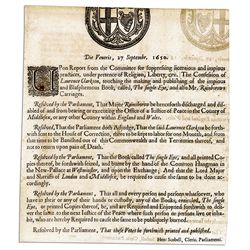 Die Veneris, 27 Septembr. 1650.
Upon Report from the Committee for suppressing licentious and impious
practices, under pretence of Religion, Liberty, &c. The Confession of
Lawrence Clarkson, touching the making and publishing of the impious
and Blasphemous Book, called, The single Eye, and also Mr. Rainborow's
Carriages.
Resolved by the Parliament, That Major Rainborow be henceforth discharged and disabled
of and from bearing or executing the Office of a Justice of Peace in the County of
Middlesex, or any other County within England and Wales.
Resolved, That the Parliament doth Adjudge, That the said Lawrence Clarkson be forth-
with sent to the House of Correction, there to be kept to labor for one Month, and from
that time to be banished out of this Commonwealth and the Territories thereof, and
not to return upon pain of Death.
Resolved by the Parliament, That the Book called The single Eye, and all printed Co-
pies thereof, be forthwith seized, and burnt by the hand of the Common Hangman in
the New-Palace at Westminster, and upon the Exchange; And that the Lord Major
and Sheriffs of London and Middlesex are required to cause the same to be done
and performed.
Resolved by the Parliament, That all and every person and persons whatsoever, who
have in their or any of their hands or custody, any of the Books, entituled, The single
Eye, or printed Copies thereof, be, and are Required and Enjoyned forthwith to deli-
ver the same to the next Justice of the Peace where such person or persons are or inha-
bit, who are hereby Required to cause the same to be publiquely burned.
Resolved by the Parliament, That these Votes be forthwith printed and published.
Hen: Scobell, Cleric. Parliamenti.